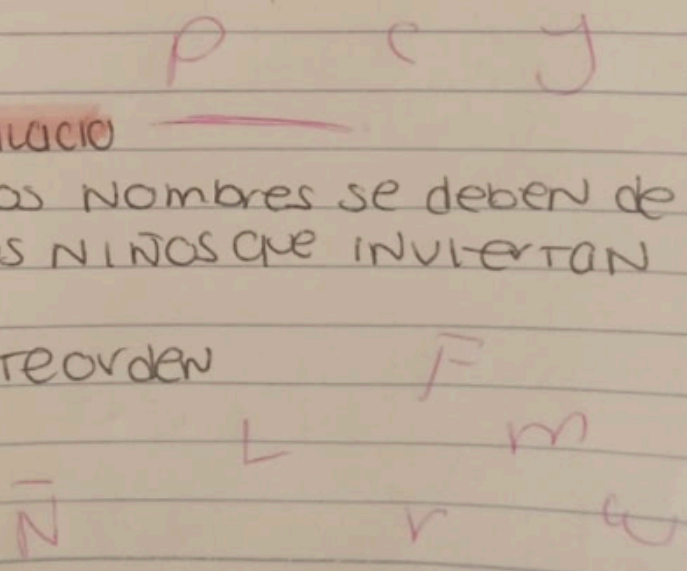 P c y
lacio
os Nombres se deben de
s Niños que inviertan
reorden
F
L m
Ñ r